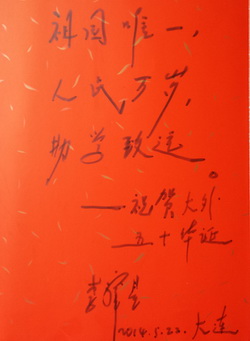 祖国唯一，
人民万岁，
助学致远。
——祝贺大外
五十华诞
李肇星
2014.5.22. 大连